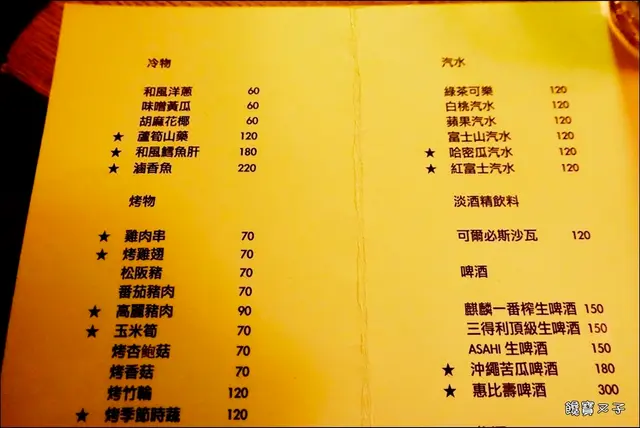 冷物
和風洋蔥 60
味噌黃瓜 60
胡麻花椰 60
★ 蘆筍山藥 120
★ 和風鱈魚肝 180
★ 滷香魚 220
烤物
★ 雞肉串 70
★ 烤雞翅 70
松阪豬 70
番茄豬肉 70
★ 高麗豬肉 90
★ 玉米筍 70
烤杏鮑菇 70
烤香菇 70
烤竹輪 120
★ 烤季節時蔬 120
汽水
綠茶可樂 120
白桃汽水 120
蘋果汽水 120
富士山汽水 120
★ 哈密瓜汽水 120
★ 紅富士汽水 120
淡酒精飲料
可爾必斯沙瓦 120
啤酒
麒麟一番榨生啤酒 150
三得利頂級生啤酒 150
ASAHI 生啤酒 150
★ 沖繩苦瓜啤酒 180
★ 惠比壽啤酒 300
饞寶又子